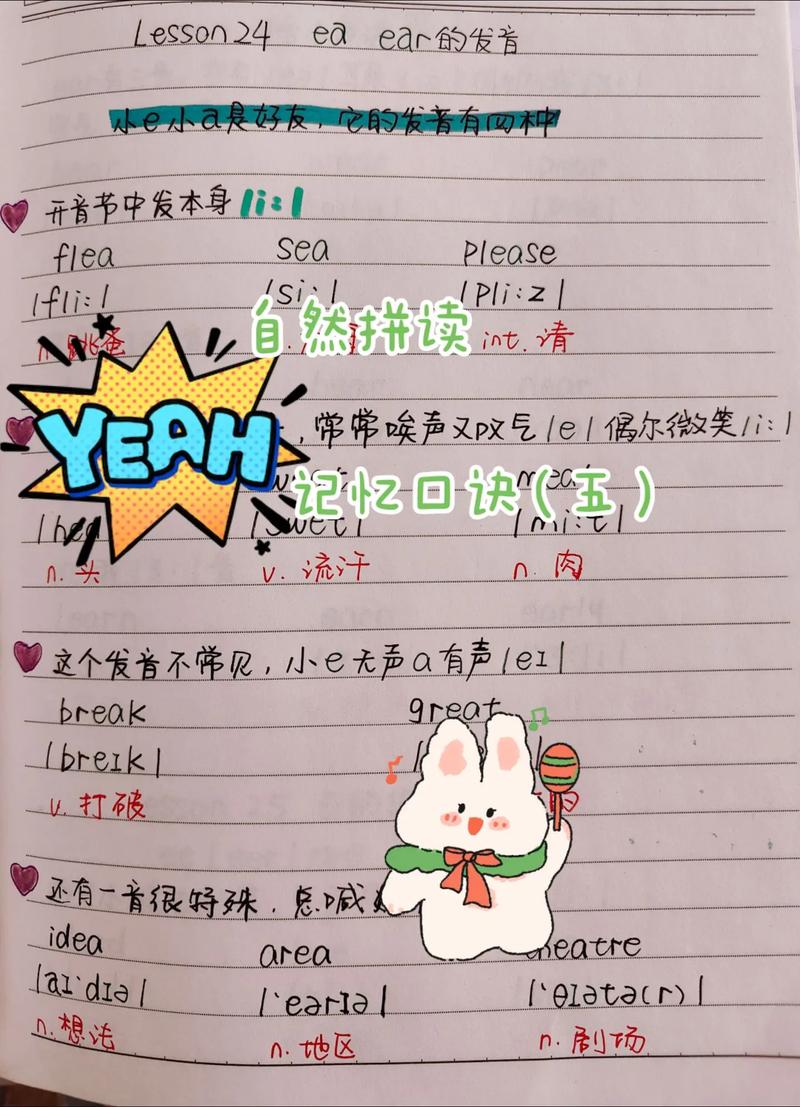 Lesson 24 ea ear的发音
小e小a是好友，它的发音有四种
开音节中发本身/i:/
flea sea please
/fli:/ /si:/ /pli:z/
自然拼读
n. 跳蚤 int. 请
YEAH
，常常唉声又叹气/e/偶尔微笑/i:/
meat
记忆口诀(五)
/swet/ /mi:t/
n. 头 v. 流汗 n. 肉
这个发音不常见，小e无声a有声/eɪ/
break great
/breɪk/
v. 打破
还有一音很特殊，总喊
idea area theatre
/aɪ'dɪə/ /'earɪə/ /'θɪətə(r)/
n. 想法 n. 地区 n. 剧场